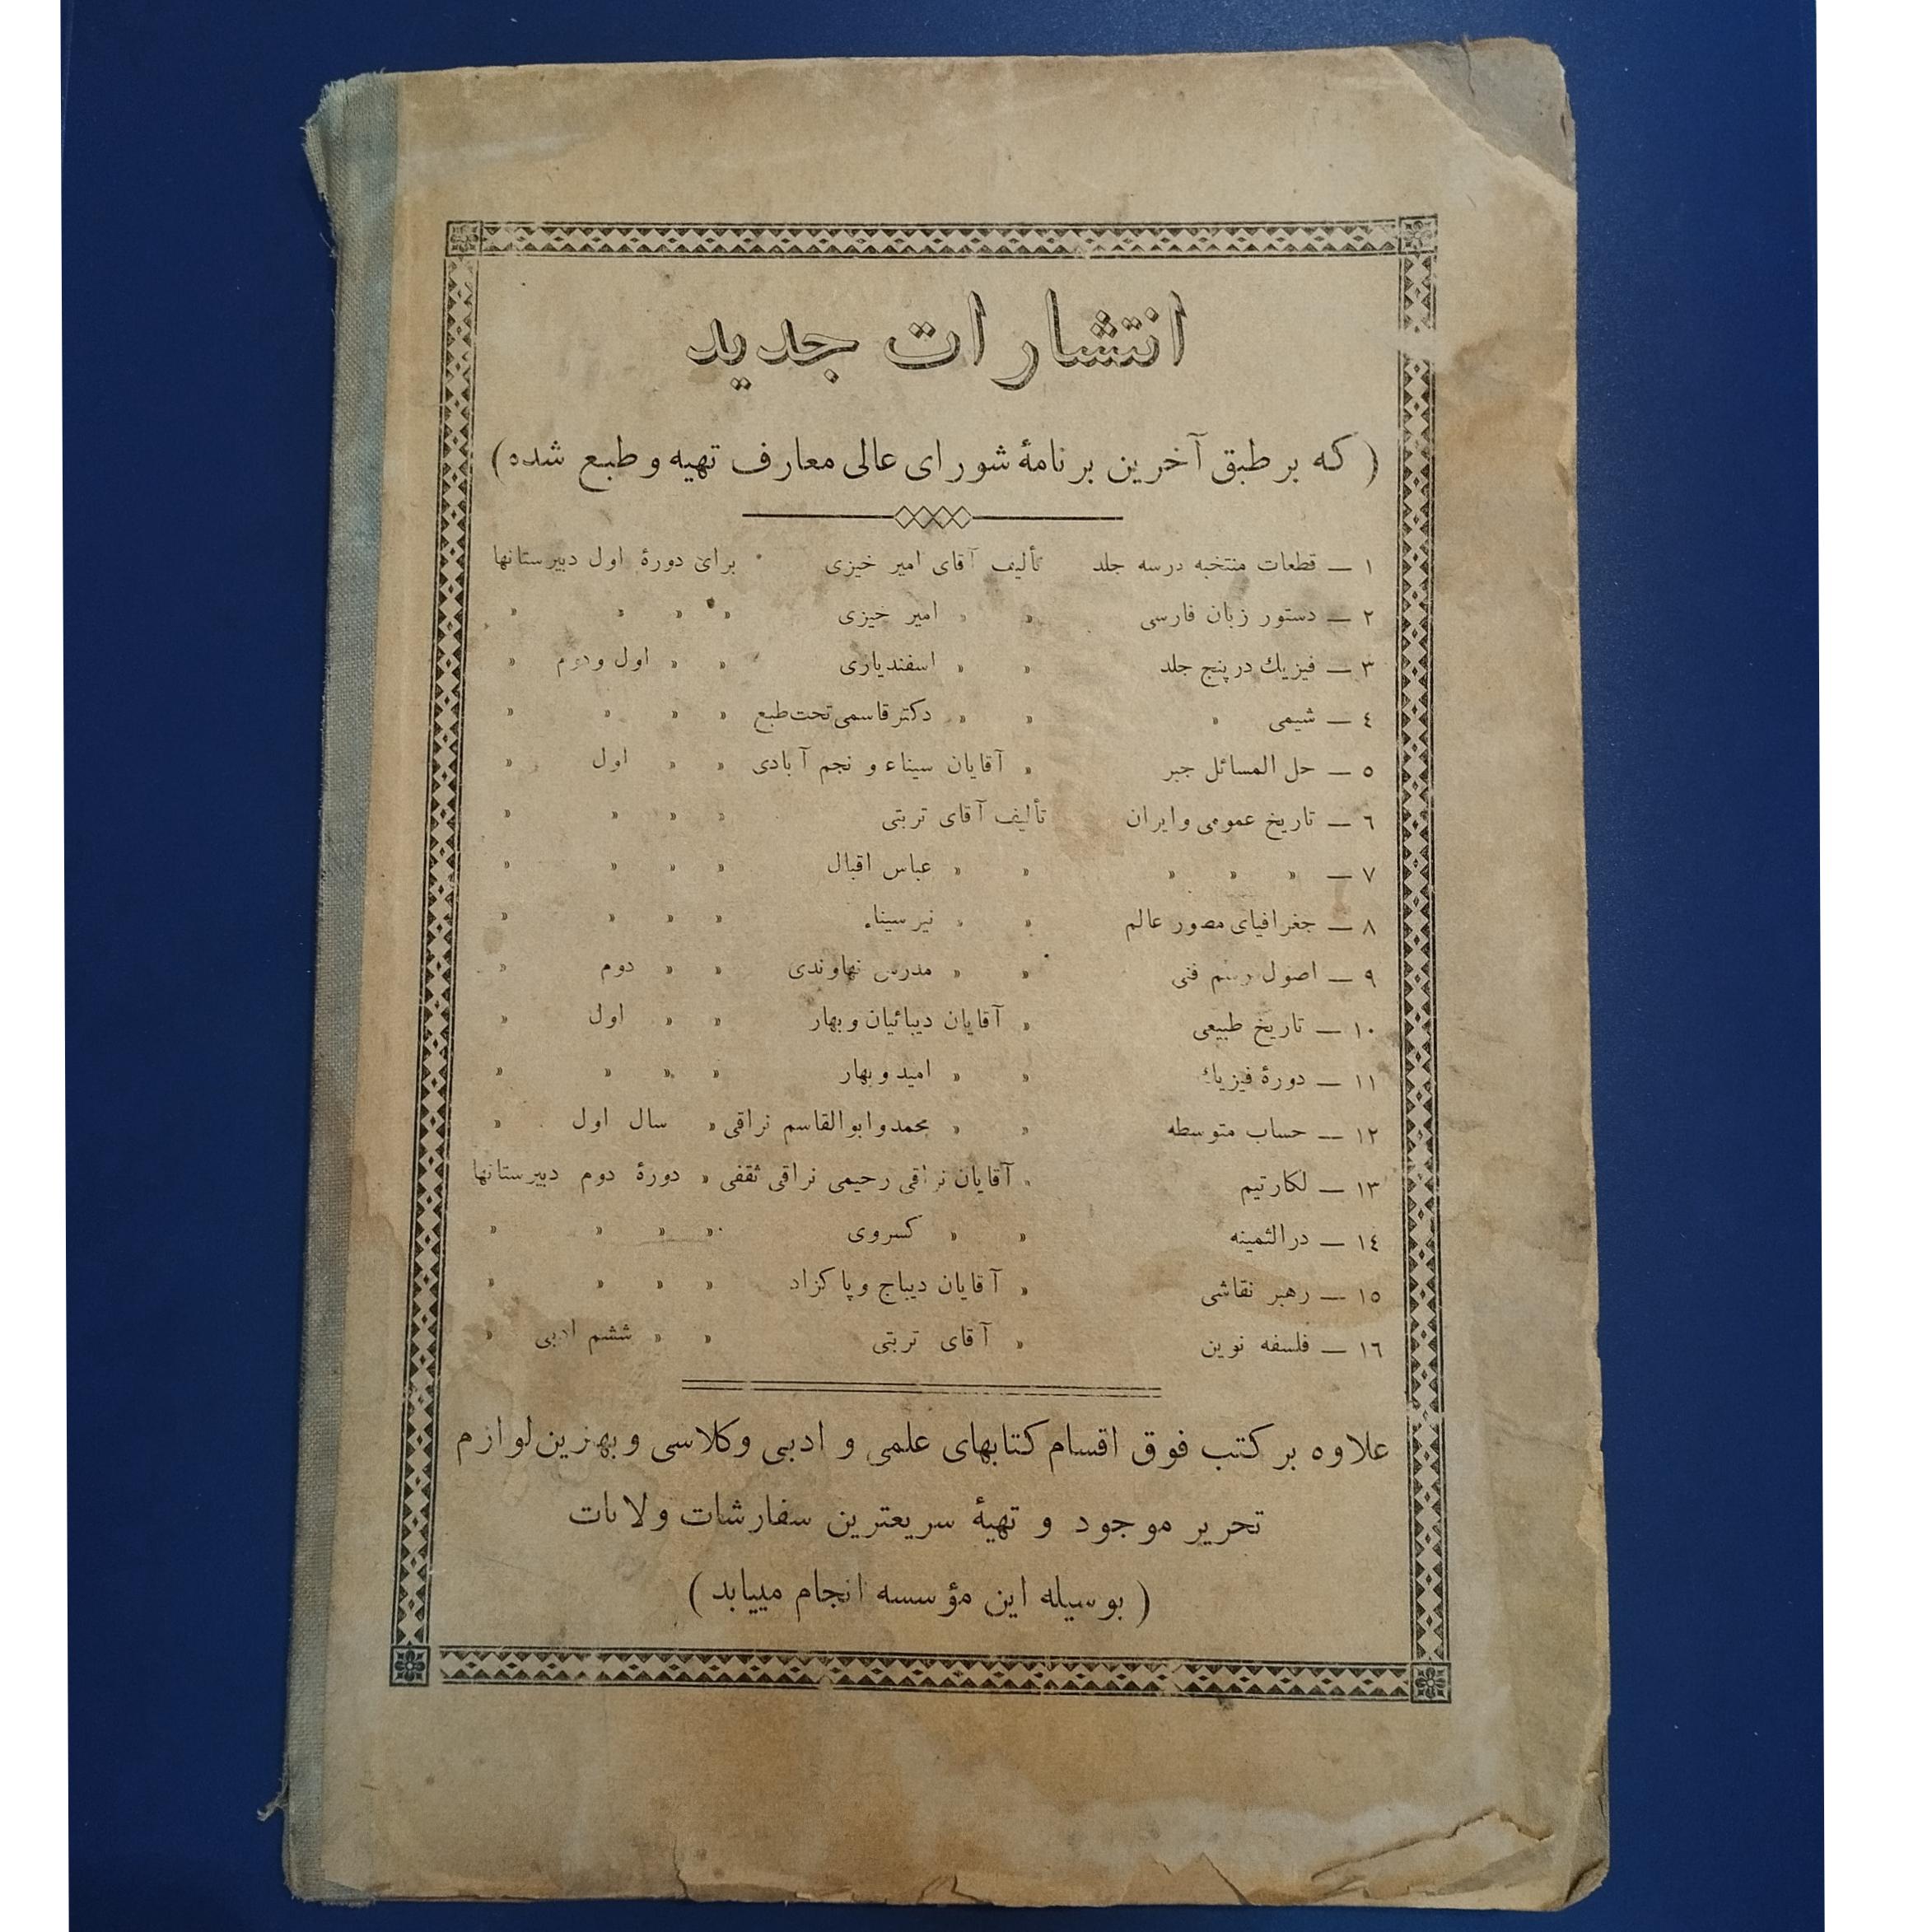 انتشارات جدید
( که بر طبق آخرین برنامهٔ شورای عالی معارف تهیه و طبع شده )
۱ — قطعات منتخبه در سه جلد تألیف آقای امیر خیزی برای دورهٔ اول دبیرستانها
۲ — دستور زبان فارسی » » امیر خیزی » » » »
۳ — فیزیك در پنج جلد » » اسفندیاری » » اول و دوم »
٤ — شیمی » » » دکتر قاسمی تحت طبع » » » »
٥ — حل المسائل جبر » آقایان سیناء و نجم آبادی » » اول »
٦ — تاریخ عمومی و ایران تألیف آقای تربتی » » » »
۷ — » » » » » عباس اقبال » » » »
۸ — جغرافیای مصور عالم » » نیر سیناء » » » »
۹ — اصول رسم فنی » » مدرس نهاوندی » » دوم »
۱۰ — تاریخ طبیعی » آقایان دیبائیان و بهار » » اول »
۱۱ — دورهٔ فیزیك » » امید و بهار » » » »
۱۲ — حساب متوسطه » » محمد و ابوالقاسم نراقی » سال اول »
۱۳ — لکارتیم » آقایان نراقی رحیمی نراقی ثقفی » دورهٔ دوم دبیرستانها
۱٤ — درالثمینه » » کسروی » » » »
۱٥ — رهبر نقاشی » آقایان دیباج و پاکزاد » » » »
۱٦ — فلسفه نوین » آقای تربتی » » ششم ادبی »
علاوه بر کتب فوق اقسام کتابهای علمی و ادبی و کلاسی و بهترین لوازم
تحریر موجود و تهیهٔ سریعترین سفارشات ولایات
( بوسیله این مؤسسه انجام مییابد )